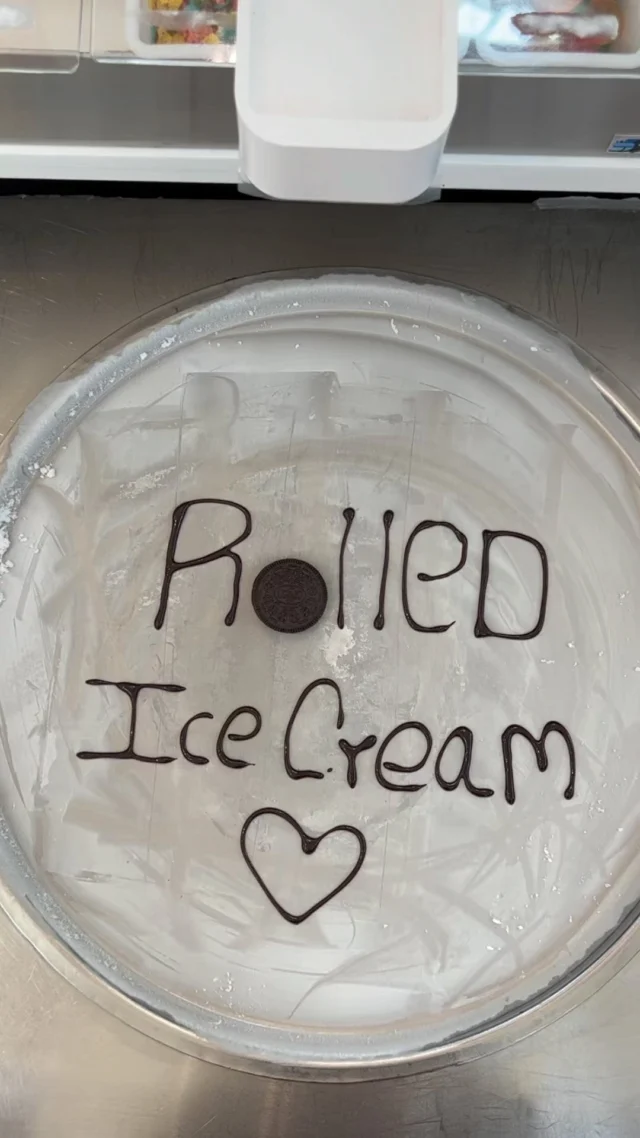 Rolled
Ice Cream